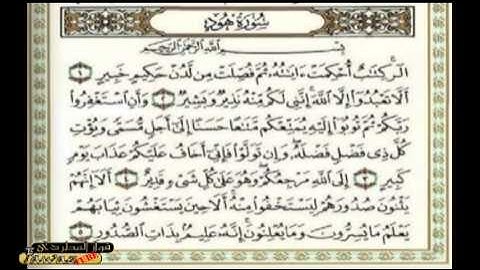 سُورَةُ هُودٍ
بِسْمِ ٱللَّهِ ٱلرَّحْمَٰنِ ٱلرَّحِيمِ
الٓر كِتَٰبٌ أُحْكِمَتْ ءَايَٰتُهُۥ ثُمَّ فُصِّلَتْ مِن لَّدُنْ حَكِيمٍ خَبِيرٍ ١
أَلَّا تَعْبُدُوٓا۟ إِلَّا ٱللَّهَ إِنَّنِى لَكُم مِّنْهُ نَذِيرٌ وَبَشِيرٌ ٢ وَأَنِ ٱسْتَغْفِرُوا۟
رَبَّكُمْ ثُمَّ تُوبُوٓا۟ إِلَيْهِ يُمَتِّعْكُم مَّتَٰعًا حَسَنًا إِلَىٰٓ أَجَلٍ مُّسَمًّى وَيُؤْتِ
كُلَّ ذِى فَضْلٍ فَضْلَهُۥ وَإِن تَوَلَّوْا۟ فَإِنِّىٓ أَخَافُ عَلَيْكُمْ عَذَابَ يَوْمٍ
كَبِيرٍ ٣ إِلَى ٱللَّهِ مَرْجِعُكُمْ وَهُوَ عَلَىٰ كُلِّ شَىْءٍ قَدِيرٌ ٤ أَلَآ إِنَّهُمْ
يَثْنُونَ صُدُورَهُمْ لِيَسْتَخْفُوا۟ مِنْهُ أَلَا حِينَ يَسْتَغْشُونَ ثِيَابَهُمْ
يَعْلَمُ مَا يُسِرُّونَ وَمَا يُعْلِنُونَ إِنَّهُۥ عَلِيمٌۢ بِذَاتِ ٱلصُّدُورِ ٥
TUBE